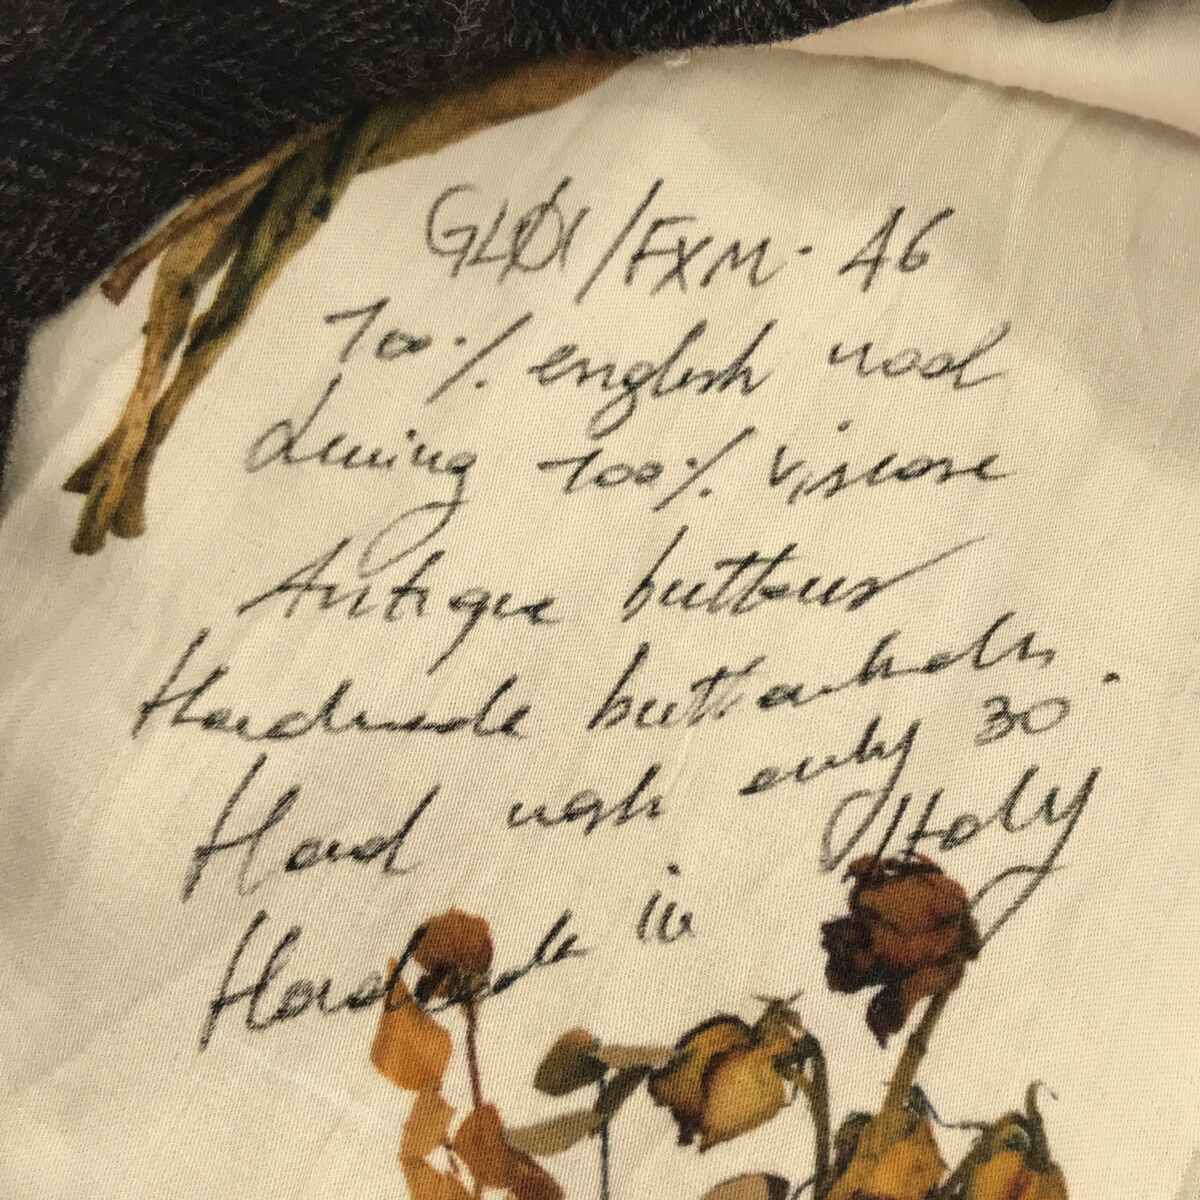 /FXM. 46
100% english wool
Lining 100% viscose
Antique buttons
Handmade buttonholes.
Hand wash only 30
Handmade in Italy